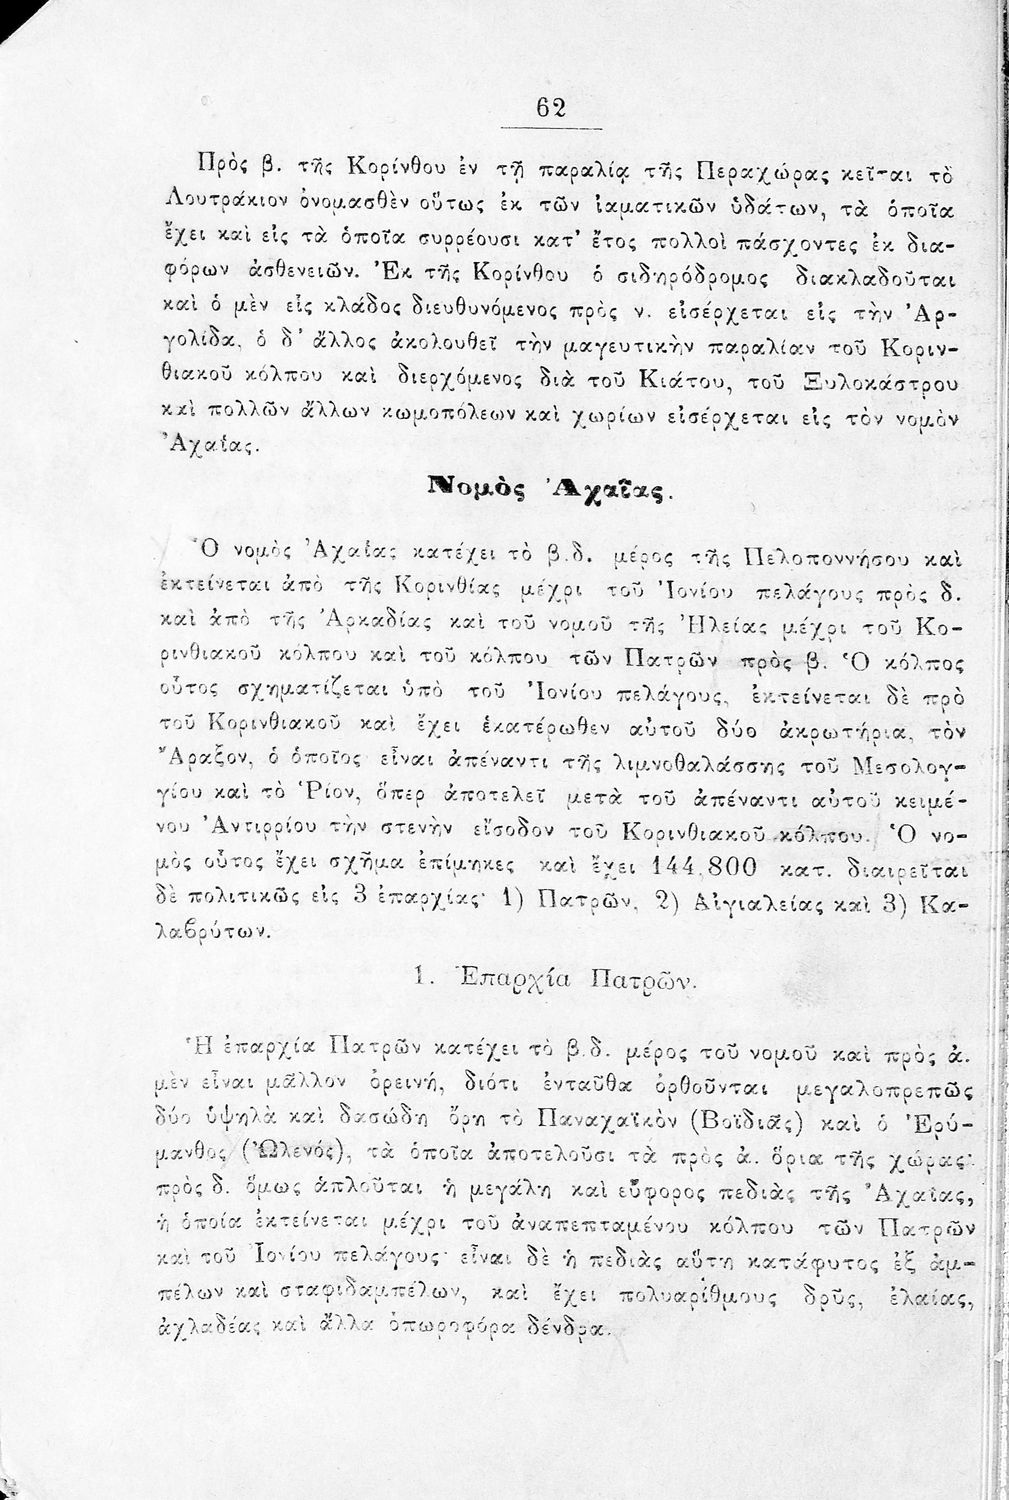 62
Πρὸς β. τῆς Κορίνθου ἐν τῇ παραλίᾳ τῆς Περαχώρας κεῖται τὸ
Λουτράκιον ὀνομασθὲν οὕτως ἐκ τῶν ἰαματικῶν ὑδάτων, τὰ ὁποῖα
ἔχει καὶ εἰς τὰ ὁποῖα συρρέουσι κατ' ἔτος πολλοὶ πάσχοντες ἐκ δια-
φόρων ἀσθενειῶν. Ἐκ τῆς Κορίνθου ὁ σιδηρόδρομος διακλαδοῦται
καὶ ὁ μὲν εἷς κλάδος διευθυνόμενος πρὸς ν. εἰσέρχεται εἰς τὴν Ἀρ-
γολίδα, ὁ δ' ἄλλος ἀκολουθεῖ τὴν μαγευτικὴν παραλίαν τοῦ Κοριν-
θιακοῦ κόλπου καὶ διερχόμενος διὰ τοῦ Κιάτου, τοῦ Ξυλοκάστρου
καὶ πολλῶν ἄλλων κωμοπόλεων καὶ χωρίων εἰσέρχεται εἰς τὸν νομὸν
Ἀχαΐας.
Νομὸς Ἀχαΐας.
Ὁ νομὸς Ἀχαΐας κατέχει τὸ β.δ. μέρος τῆς Πελοποννήσου καὶ
ἐκτείνεται ἀπὸ τῆς Κορινθίας μέχρι τοῦ Ἰονίου πελάγους πρὸς δ.
καὶ ἀπὸ τῆς Ἀρκαδίας καὶ τοῦ νομοῦ τῆς Ἠλείας μέχρι τοῦ Κο-
ρινθιακοῦ κόλπου καὶ τοῦ κόλπου τῶν Πατρῶν πρὸς β. Ὁ κόλπος
οὗτος σχηματίζεται ὑπὸ τοῦ Ἰονίου πελάγους, ἐκτείνεται δὲ πρὸ
τοῦ Κορινθιακοῦ καὶ ἔχει ἑκατέρωθεν αὐτοῦ δύο ἀκρωτήρια, τὸν
Ἄραξον, ὁ ὁποῖος εἶναι ἀπέναντι τῆς λιμνοθαλάσσης τοῦ Μεσολογ-
γίου καὶ τὸ Ῥίον, ὅπερ ἀποτελεῖ μετὰ τοῦ ἀπέναντι αὐτοῦ κειμέ-
νου Ἀντιρρίου τὴν στενὴν εἴσοδον τοῦ Κορινθιακοῦ κόλπου. Ὁ νο-
μὸς οὗτος ἔχει σχῆμα ἐπίμηκες καὶ ἔχει 144,800 κατ. διαιρεῖται
δὲ πολιτικῶς εἰς 3 ἐπαρχίας· 1) Πατρῶν, 2) Αἰγιαλείας καὶ 3) Κα-
λαβρύτων.
1. Ἐπαρχία Πατρῶν.
Ἡ ἐπαρχία Πατρῶν κατέχει τὸ β.δ. μέρος τοῦ νομοῦ καὶ πρὸς ἀ.
μὲν εἶναι μᾶλλον ὀρεινή, διότι ἐνταῦθα ὀρθοῦνται μεγαλοπρεπῶς
δύο ὑψηλὰ καὶ δασώδη ὄρη τὸ Παναχαϊκὸν (Βοϊδιᾶς) καὶ ὁ Ἐρύ-
μανθος (Ὠλενός), τὰ ὁποῖα ἀποτελοῦσι τὰ πρὸς ἀ. ὅρια τῆς χώρας·
πρὸς δ. ὅμως ἁπλοῦται ἡ μεγάλη καὶ εὔφορος πεδιὰς τῆς Ἀχαΐας,
ἡ ὁποία ἐκτείνεται μέχρι τοῦ ἀναπεπταμένου κόλπου τῶν Πατρῶν
καὶ τοῦ Ἰονίου πελάγους· εἶναι δὲ ἡ πεδιὰς αὕτη κατάφυτος ἐξ ἀμ-
πέλων καὶ σταφιδαμπέλων, καὶ ἔχει πολυαρίθμους δρῦς, ἐλαίας,
ἀχλαδέας καὶ ἄλλα ὀπωροφόρα δένδρα.